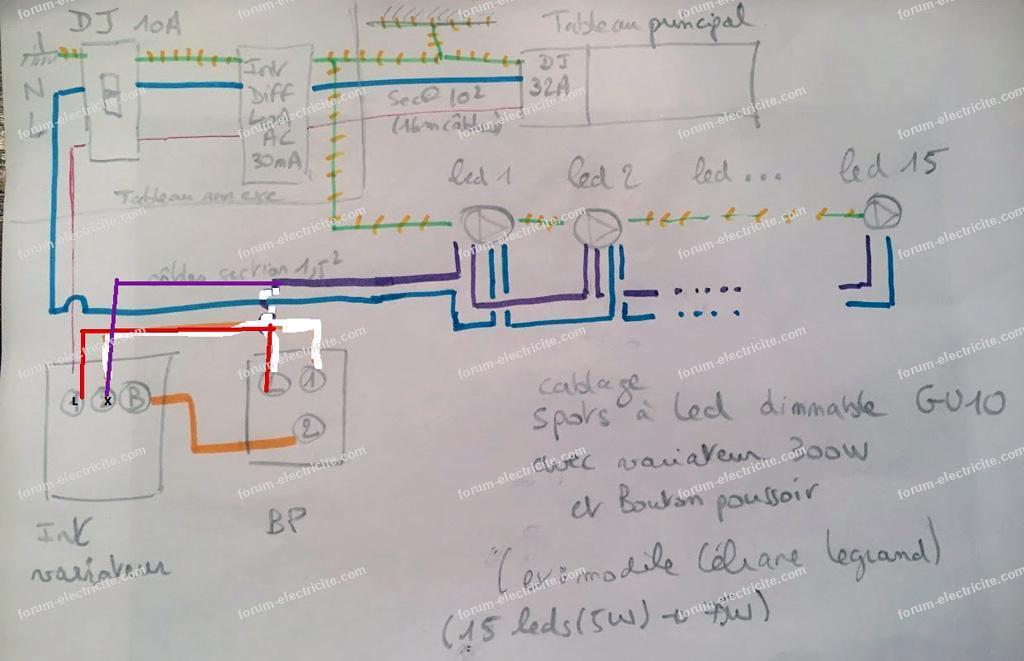 DJ 10A
Tableau principal
N
L
Int
Diff
40A
AC
30mA
DJ
32A
Sec° 10²
(16m câbles)
Tableau annexe
led 1
led 2
led ...
led 15
câbles section 1,5²
L
X
B
1
2
Int
variateur
BP
cablage
spots à led dimmable GU10
avec variateur 300W
et Bouton poussoir
modèle Céliane legrand)
(15 leds(5W)
forum-electricite.com